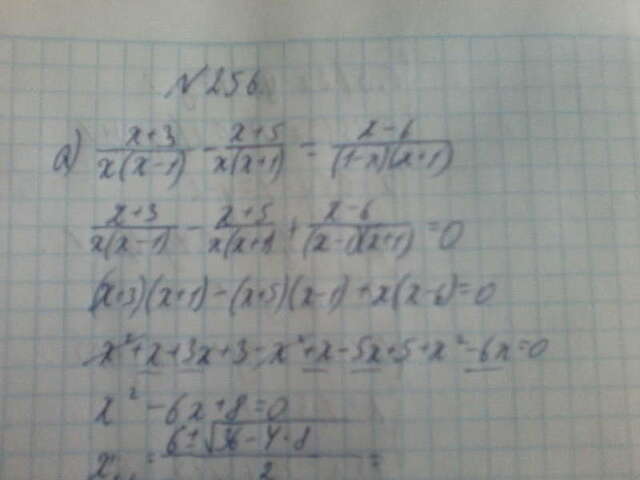 №256
а) (x+3)/(x(x-1)) - (x+5)/(x(x+1)) = (x-6)/((1-x)(x+1))
(x+3)/(x(x-1)) - (x+5)/(x(x+1)) + (x-6)/((x-1)(x+1)) = 0
(x+3)(x+1)-(x+5)(x-1)+x(x-6)=0
x²+x+3x+3-x²+x-5x+5+x²-6x=0
x²-6x+8=0
x = (6±√(36-4·8))/2 =